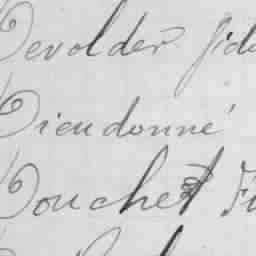 Devolder
Dieudonné
Douchet